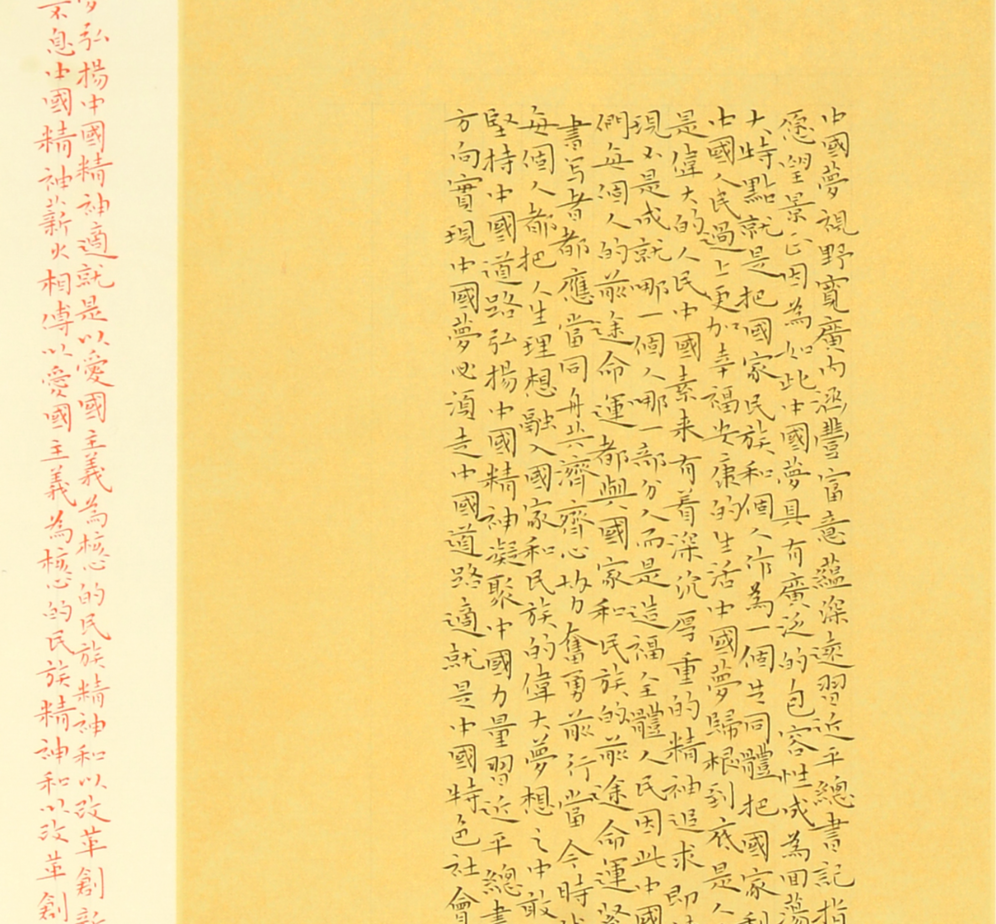 中國夢視野寬廣內涵豐富意蘊深遠習近平總書記指
愿望景正因為如此中國夢具有廣泛的包容性成為回蕩
大特點就是把國家民族和個人作為一個共同體把國家利
中國人民過上更加幸福安康的生活中國夢歸根到底是人
是偉大的人民中國素来有着深沉厚重的精神追求即
現不是成就哪一個人哪一部分人而是造福全體人民因此中國
們每個人的前途命運都與國家和民族的前途命運緊
書写者都應當同舟共濟齊心协力奮勇前行當今時
每個人都把人生理想融入國家和民族的偉大夢想之中敢
堅持中國道路弘揚中國精神凝聚中國力量習近平總書
方向實現中國夢必須走中國道路適就是中國特色社會
弘揚中國精神適就是以愛國主義為核心的民族精神和以改革創新
不息中國精神薪火相傳以愛國主義為核心的民族精神和以改革創